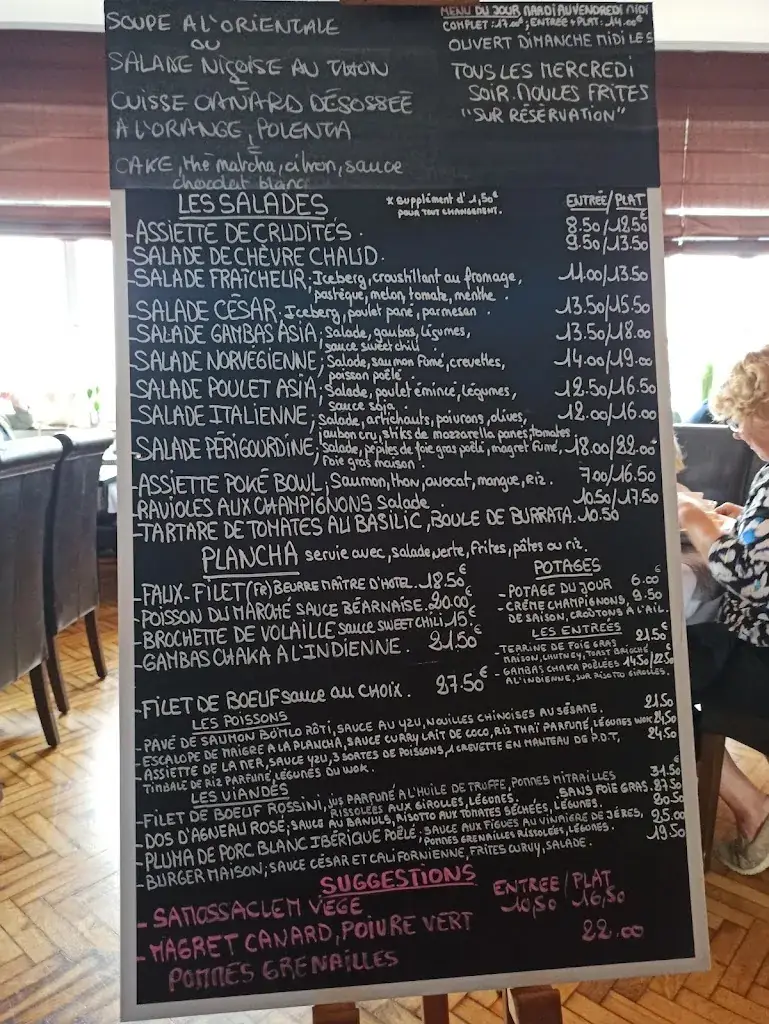 SOUPE A L'ORIENTALE
OU
SALADE NIÇOISE AU THON
CUISSE CANARD DÉSOSSÉE
A L'ORANGE, POLENTA
CAKE, thé matcha, citron, sauce
chocolat blanc
MENU DU JOUR MARDI AU VENDREDI MIDI
COMPLET: 17.00€; ENTREE+PLAT: 14.00€
OUVERT DIMANCHE MIDI LES
TOUS LES MERCREDI
SOIR. MOULES FRITES
"SUR RÉSERVATION"
LES SALADES
* Supplément d'1,50€
POUR TOUT CHANGEMENT.
ENTRÉE/PLAT
-ASSIETTE DE CRUDITÉS. 8.50/12.50€
-SALADE DE CHÈVRE CHAUD. 9.50/13.50
-SALADE FRAÎCHEUR; Iceberg, croustillant au fromage, 11.00/13.50
pastèque, melon, tomate, menthe.
-SALADE CÉSAR. Iceberg, poulet pané, parmesan. 13.50/15.50
-SALADE GAMBAS ASIA; Salade, gambas, légumes, 13.50/18.00
sauce sweet chili.
-SALADE NORVEGIENNE; Salade, saumon fumé, crevettes, 14.00/19.00
poisson poêlé.
-SALADE POULET ASIA; Salade, poulet émincé, légumes, 12.50/16.50
sauce soja.
-SALADE ITALIENNE; Salade, artichauts, poivrons, olives, 12.00/16.00
jambon cru, stiks de mozzarella panés, tomates
-SALADE PÉRIGOURDINE; Salade, pépites de foie gras poêlé, magret fumé, 18.00/22.00€
foie gras maison.
-ASSIETTE POKÉ BOWL; Saumon, thon, avocat, mangue, Riz. 7.00/16.50
-RAVIOLES AUX CHAMPIGNONS Salade. 10.50/17.50
-TARTARE DE TOMATES AU BASILIC, BOULE DE BURRATA. 10.50
PLANCHA servie avec, salade verte, frites, pâtes ou riz.
-FAUX-FILET (FR) BEURRE MAÎTRE D'HOTEL. 18.50€
-POISSON DU MARCHÉ SAUCE BÉARNAISE. 20.00€
-BROCHETTE DE VOLAILLE sauce SWEET CHILI. 15.€
-GAMBAS CHAKA A L'INDIENNE. 21.50€
-FILET DE BOEUF sauce au CHOIX. 27.50€
POTAGES
-POTAGE DU JOUR 6.00€
-CRÊME CHAMPIGNONS, 9.50
DE SAISON, CROÛTONS A L'AIL.
LES ENTRÉES
-TERRINE DE FOIE GRAS 21.50€
MAISON, CHUTNEY, TOAST BRIOCHÉ
-GAMBAS CHAKA POÊLÉES 14.50/22.50
A L'INDIENNE, SUR RISOTTO GIROLLES.
LES POISSONS
-PAVÉ DE SAUMON BÖMLO RÔTI, SAUCE AU YZU, NOUILLES CHINOISES AU SÉSAME. 21.50
-ESCALOPE DE MAIGRE A LA PLANCHA, SAUCE CURRY LAIT DE COCO, RIZ THAÏ PARFUMÉ, LÉGUMES WOK 24.50
-ASSIETTE DE LA MER, SAUCE YZU, 3 SORTES DE POISSONS, 1 CREVETTE EN MANTEAU DE P.D.T, 24.50
TIMBALE DE RIZ PARFUMÉ, LÉGUMES DU WOK.
LES VIANDES
-FILET DE BOEUF ROSSINI, jus PARFUMÉ A L'HUILE DE TRUFFE, POMMES MITRAILLES 31.50
RISSOLÉES AUX GIROLLES, LÉGUMES. SANS FOIE GRAS. 27.50
-DOS D'AGNEAU ROSÉ, SAUCE AU BANULS, RISOTTO AUX TOMATES SÉCHÉES, LÉGUMES. 20.50
-PLUMA DE PORC BLANC IBÉRIQUE POÊLÉ, SAUCE AUX FIGUES AU VINAIGRE DE JÉRES, 25.00
POMMES GRENAILLES RISSOLÉES, LÉGUMES.
-BURGER MAISON, SAUCE CÉSAR ET CALIFORNIENNE, FRITES CURVY, SALADE. 19.50
SUGGESTIONS
ENTREE/PLAT
-SAMOSSACLEM VEGE 10,50 16,50
-MAGRET CANARD, POIVRE VERT 22.00
POMMES GRENAILLES